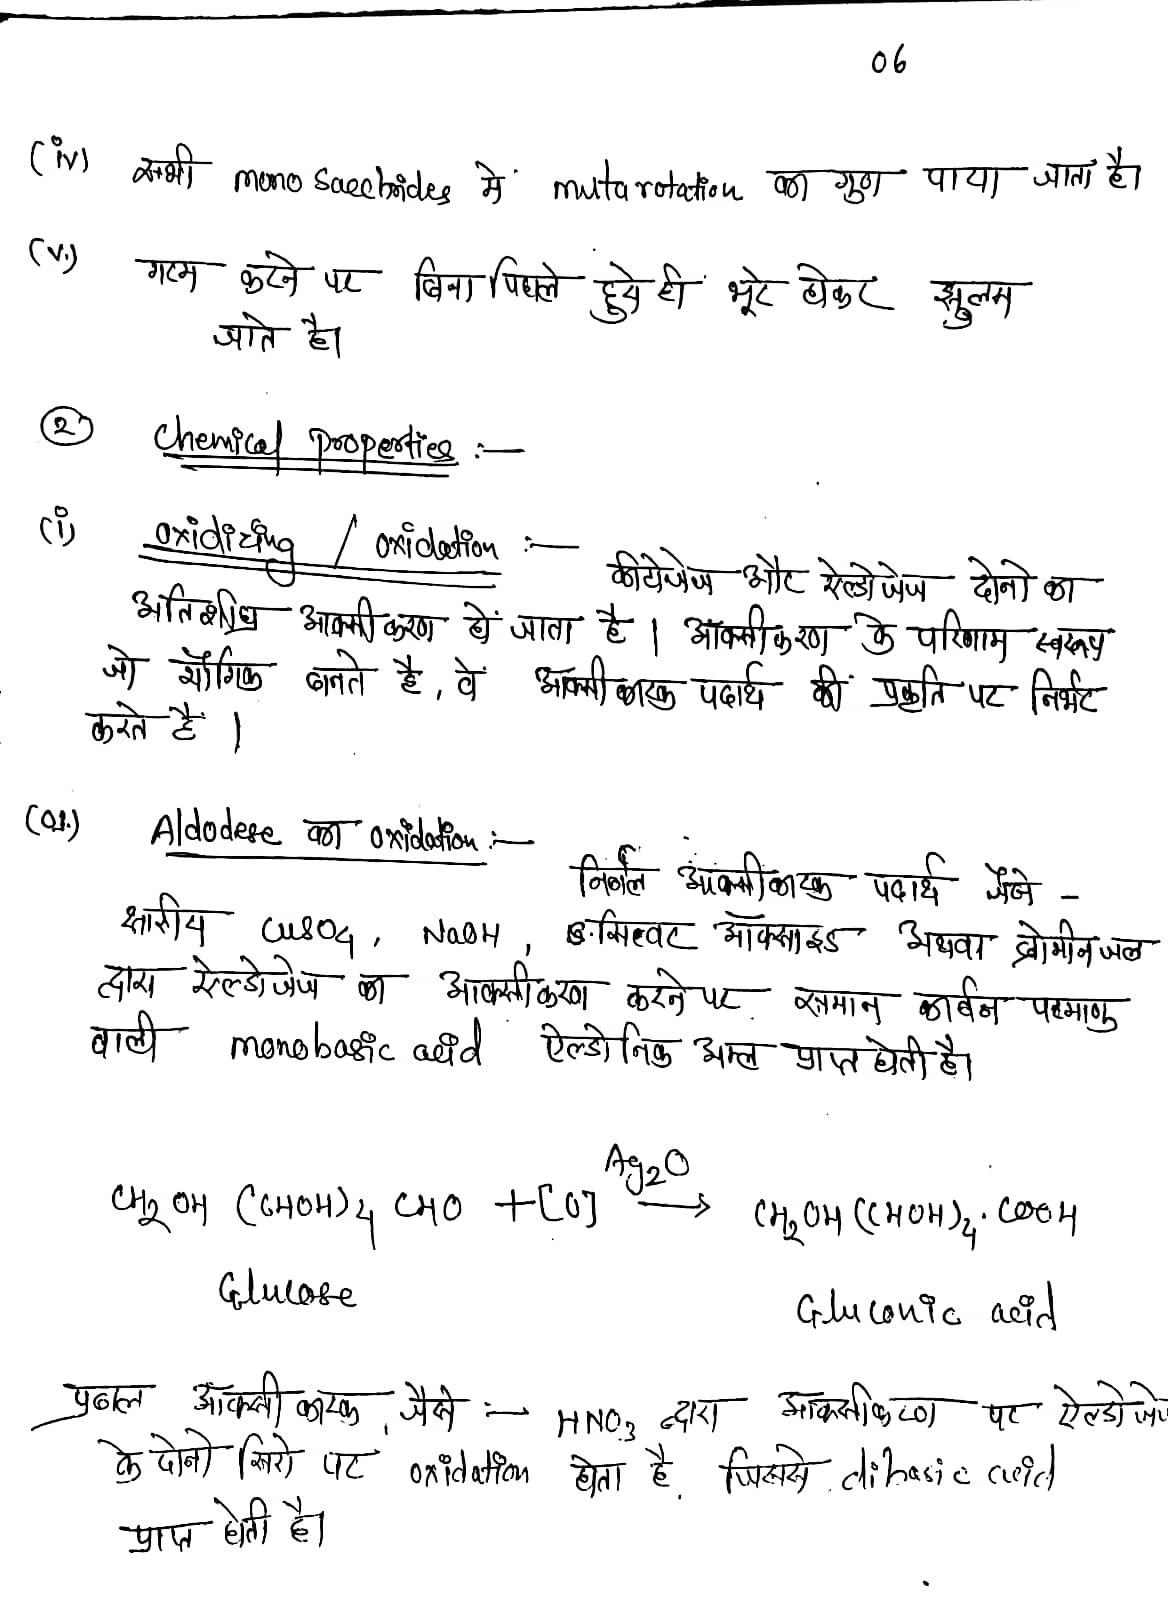 06
(iv) सभी mono Saechrides में mutarotation का गुण पाया जाता है।
(v.) गरम करने पर बिना पिघले हुये ही भूरे होकर झुलस
जाते है।
② Chemical properties :—
(i) oxidizing / oxidation :— कीटोजेज और ऐल्डोजेज दोनो का
अतिशीघ्र आक्सीकरण हो जाता है। ऑक्सीकरण के परिणाम स्वरूप
जो यौगिक बनते है, वे ऑक्सीकारक पदार्थ की प्रकृति पर निर्भर
करते है।
Aldodese का oxidation :— निर्बल ऑक्सीकारक पदार्थ जैसे -
क्षारीय CuSO4, NaOH, सिल्वर ऑक्साइड अथवा ब्रोमीन जल
द्वारा ऐल्डोजेज का आक्सीकरण करने पर समान कार्बन परमाणु
वाली monobasic acid ऐल्डोनिक अम्ल प्राप्त होती है।
Ag2O
CH2OH (CHOH)4 CHO + [O] → CH2OH (CHOH)4. COOH
Glucose Gluconic acid
प्रबल ऑक्सीकारक, जैसे :— HNO3 द्वारा ऑक्सीकरण पर ऐल्डोजेज
के दोनो सिरो पर oxidation होता है. जिससे dibasic acid
प्राप्त होती है।